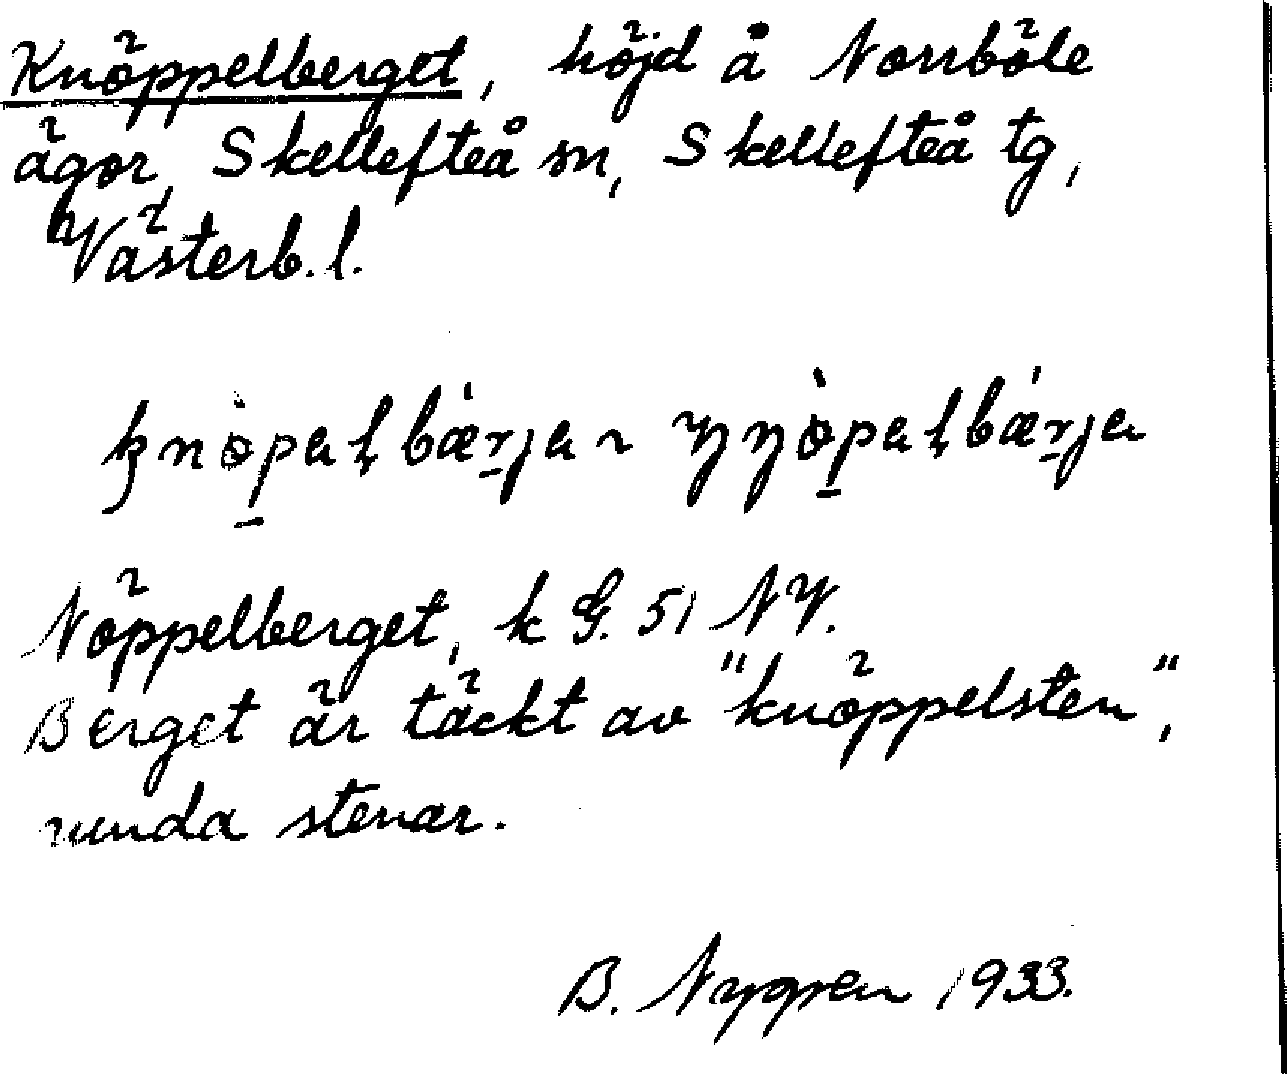 Knöppelberget, höjd å Norrböle
ägor, Skellefteå sn, Skellefteå tg,
Västerb. l.
Nöppelberget, k G. 51 NV.
Berget är täckt av "knöppelsten",
runda stenar.
B. Nygren 1933.